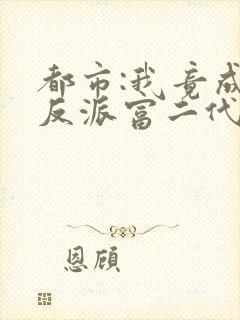 都市:我竟成
反派富二代
恩顾